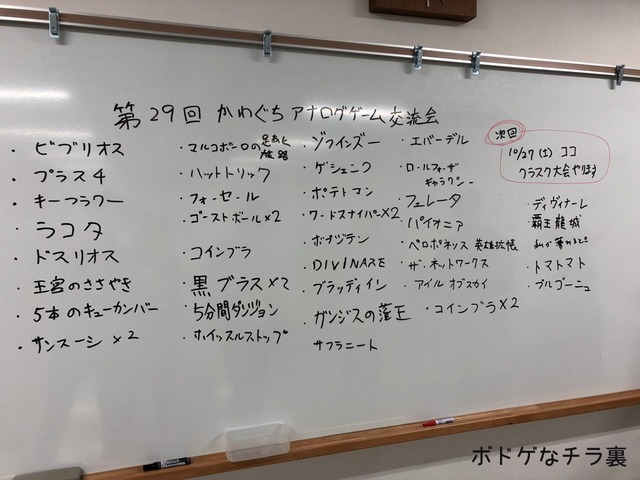 第29回 かわぐちアナログゲーム交流会
次回
10/27(土) ココ
クラスク大会やります
・ビブリオス
・プラス4
・キーフラワー
・ラコタ
・ドスリオス
・王宮のささやき
・5本のキューカンバー
・サンスーシ ×2
・マルコポーロの足あと
旅路
・ハットトリック
・フォーセール
・ゴーストボール×2
・コインブラ
・黒ブラス×2
・5分間ダンジョン
・ホイッスルストップ
・ゾフィンズー
・ゲシェンク
・ポテトマン
・ワードスナイパー×2
・ボナンザ
・DIVINARE
・ブラッディイン
・ガンジスの藩王
サフラニート
・エバーデル
・ロールフォーザ
ギャラクシー
・フェレータ
・パイオニア
・ペロポネソス 英雄拡張
・ザ・ネットワークス
・アイル オブスカイ
・コインブラ×2
・ディヴィナーレ
・覇王龍城
・トマトマト
・ブルゴーニュ
ボドゲなチラ裏